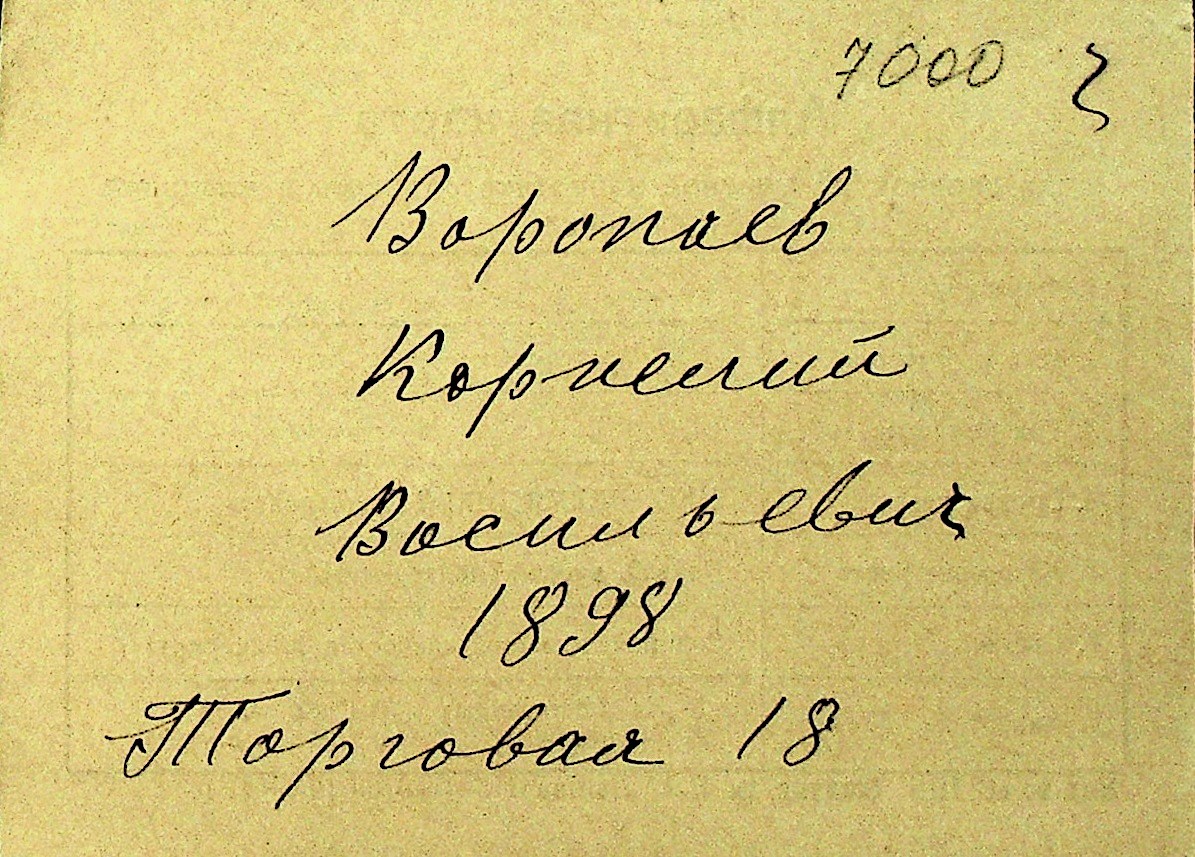 7000
Воропаев
Корнелий
Васильевич
1898
Торговая 18